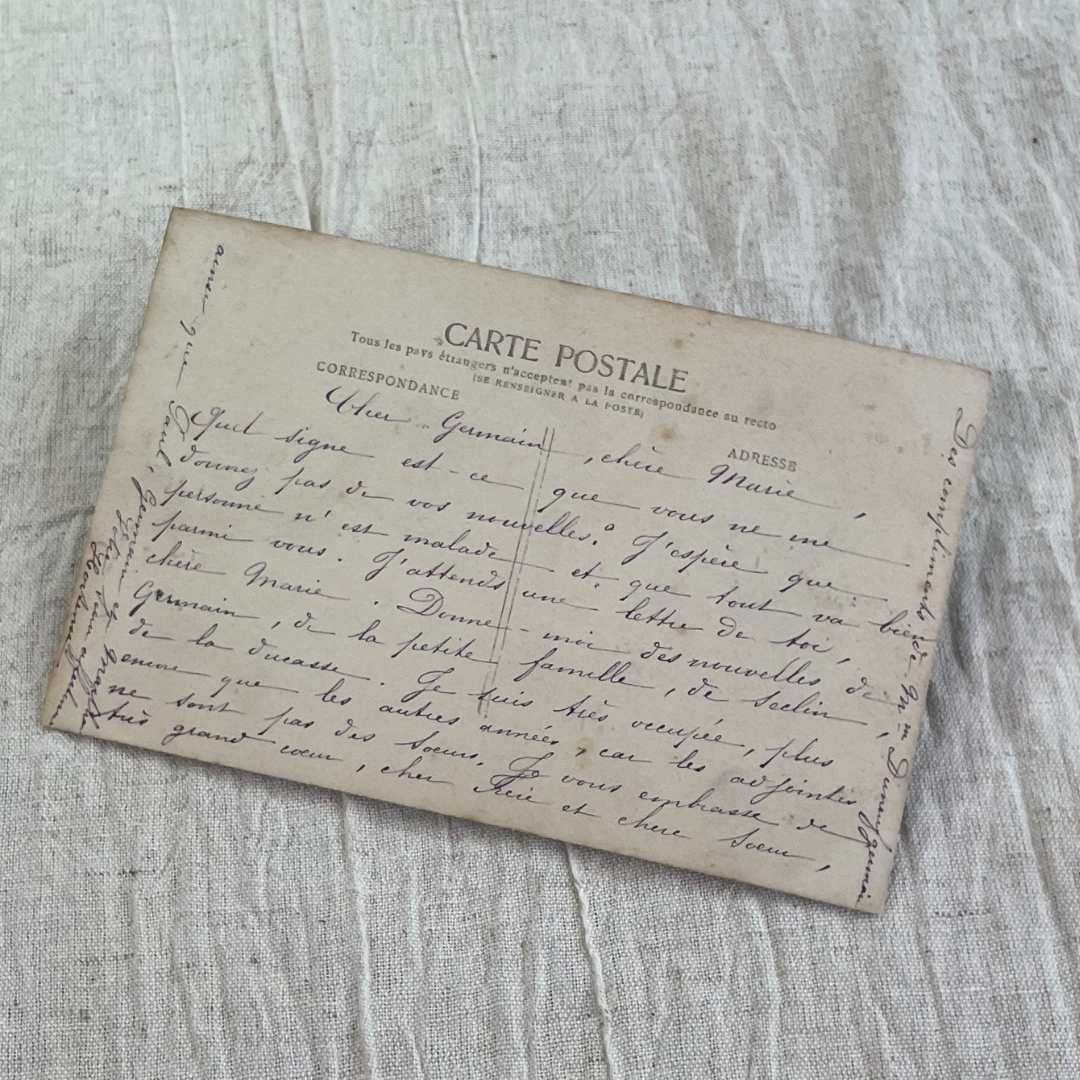 CARTE POSTALE
Tous les pays étrangers n'acceptent pas la correspondance au recto
(SE RENSEIGNER A LA POSTE)
CORRESPONDANCE
ADRESSE
Cher Germain, chère Marie,
Quel signe est-ce que vous ne me
donnez pas de vos nouvelles? J'espère que
personne n'est malade et que tout va bien
parmi vous. J'attends une lettre de toi,
chère Marie. Donne-moi des nouvelles de
Germain, de la petite famille, de Seclin,
de la ducasse. Je suis très occupée, plus
encore que les autres années, car les adjointes
ne sont pas des Soeurs. Je vous embrasse de
très grand coeur, cher Frère et chère Soeur,
ainsi que Paul, Germain et
Des compliments de M